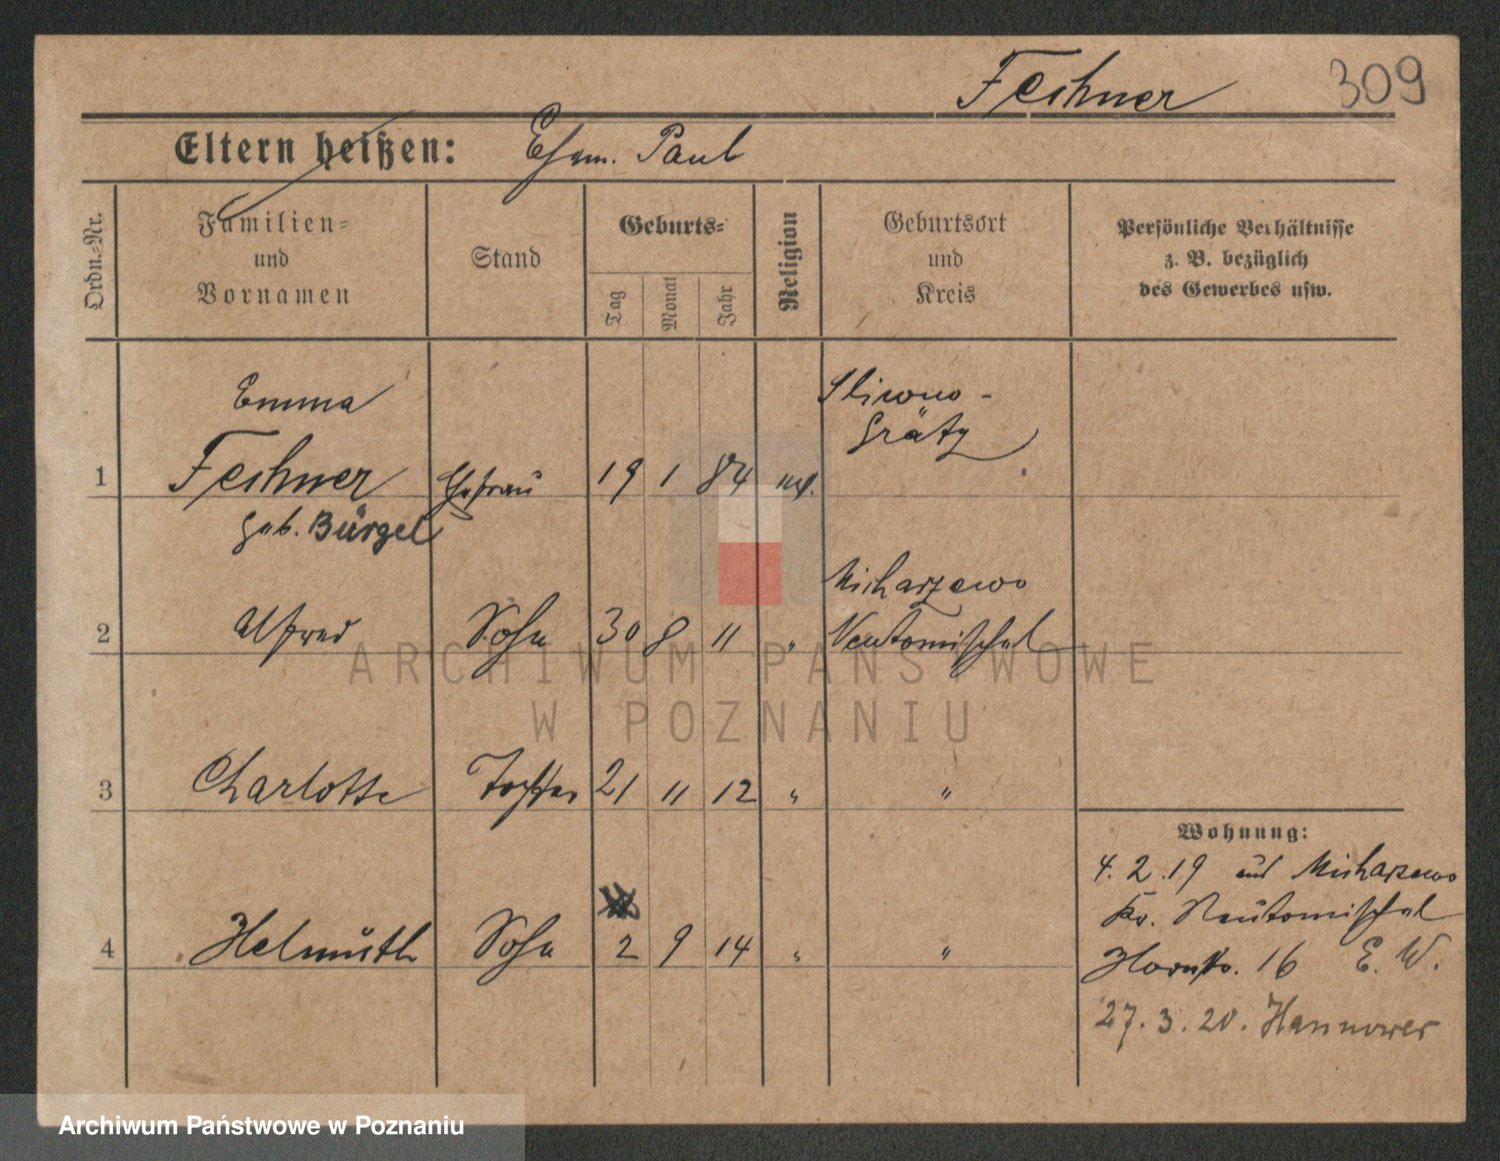 Fechner 309
Eltern heißen: Ehem. Paul
Ordn.-Nr.
Familien-
und
Vornamen
Stand
Geburts-
Tag
Monat
Jahr
Religion
Geburtsort
und
Kreis
Persönliche Verhältnisse
z. B. bezüglich
des Gewerbes usw.
Emma
1 Fechner Ehefrau 19 1 84
geb. Bürgel
Sliwno-
Grätz
Micharzewo
2 Alfred Sohn 30 8 11 " Neutomischel
3 Charlotte Tochter 21 11 12 " "
4 Helmuth Sohn 2 9 14 " "
Wohnung:
4.2.19 aus Micharzewo
Kr. Neutomischel
Hornstr. 16 E. W.
27.3.20. Hannover
ARCHIWUM PAŃSTWOWE
W POZNANIU
Archiwum Państwowe w Poznaniu